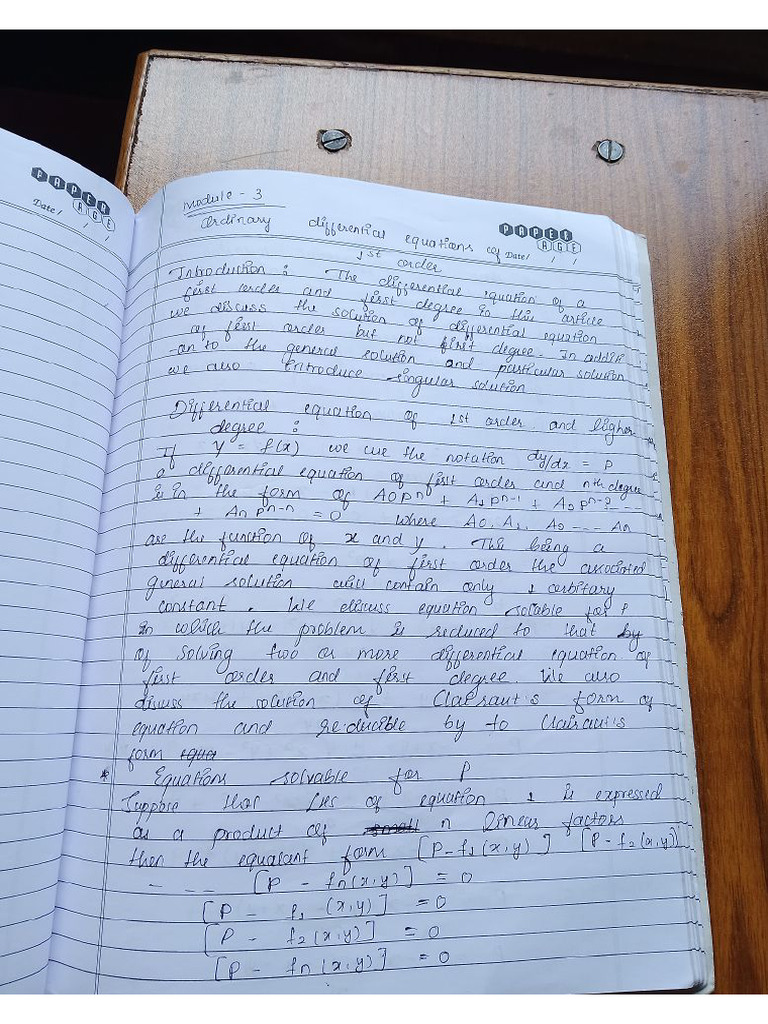 PAPER
AGE
Date / / /
PAPER
AGE
Date / / /
Module - 3
Ordinary differential equations of
1st order
Introduction : The differential equation of a
first order and first degree in this article
we discuss the solution of differential equation
of first order but not first degree. In additi
-on to the general solution and particular solution
we also introduce singular solution
Differential equation of 1st order and higher
degree :
If y = f(x) we use the notation dy/dx = P
a differential equation of first order and nth degree
is in the form of A0 pⁿ + A1 pⁿ⁻¹ + A2 pⁿ⁻² ---
+ An pⁿ⁻ⁿ = 0 where A0, A1, A2 ---- An
are the function of x and y. This being a
differential equation of first order the associated
general solution will contain only 1 arbitary
constant. We discuss equation solvable for P
in which the problem is reduced to that by
of solving two or more differential equation of
first order and first degree. We also
discuss the solution of Clairaut's form of
equation and reducible by to Clairaut's
form
* Equations solvable for P
Suppose that LHS of equation 1 is expressed
as a product of n linear factors
then the equalant form [P - f1 (x,y)] [P - f2 (x,y)]
- -- [P - fn (x,y)] = 0
[P - f1 (x,y)] = 0
[P - f2 (x,y)] = 0
[P - fn (x,y)] = 0